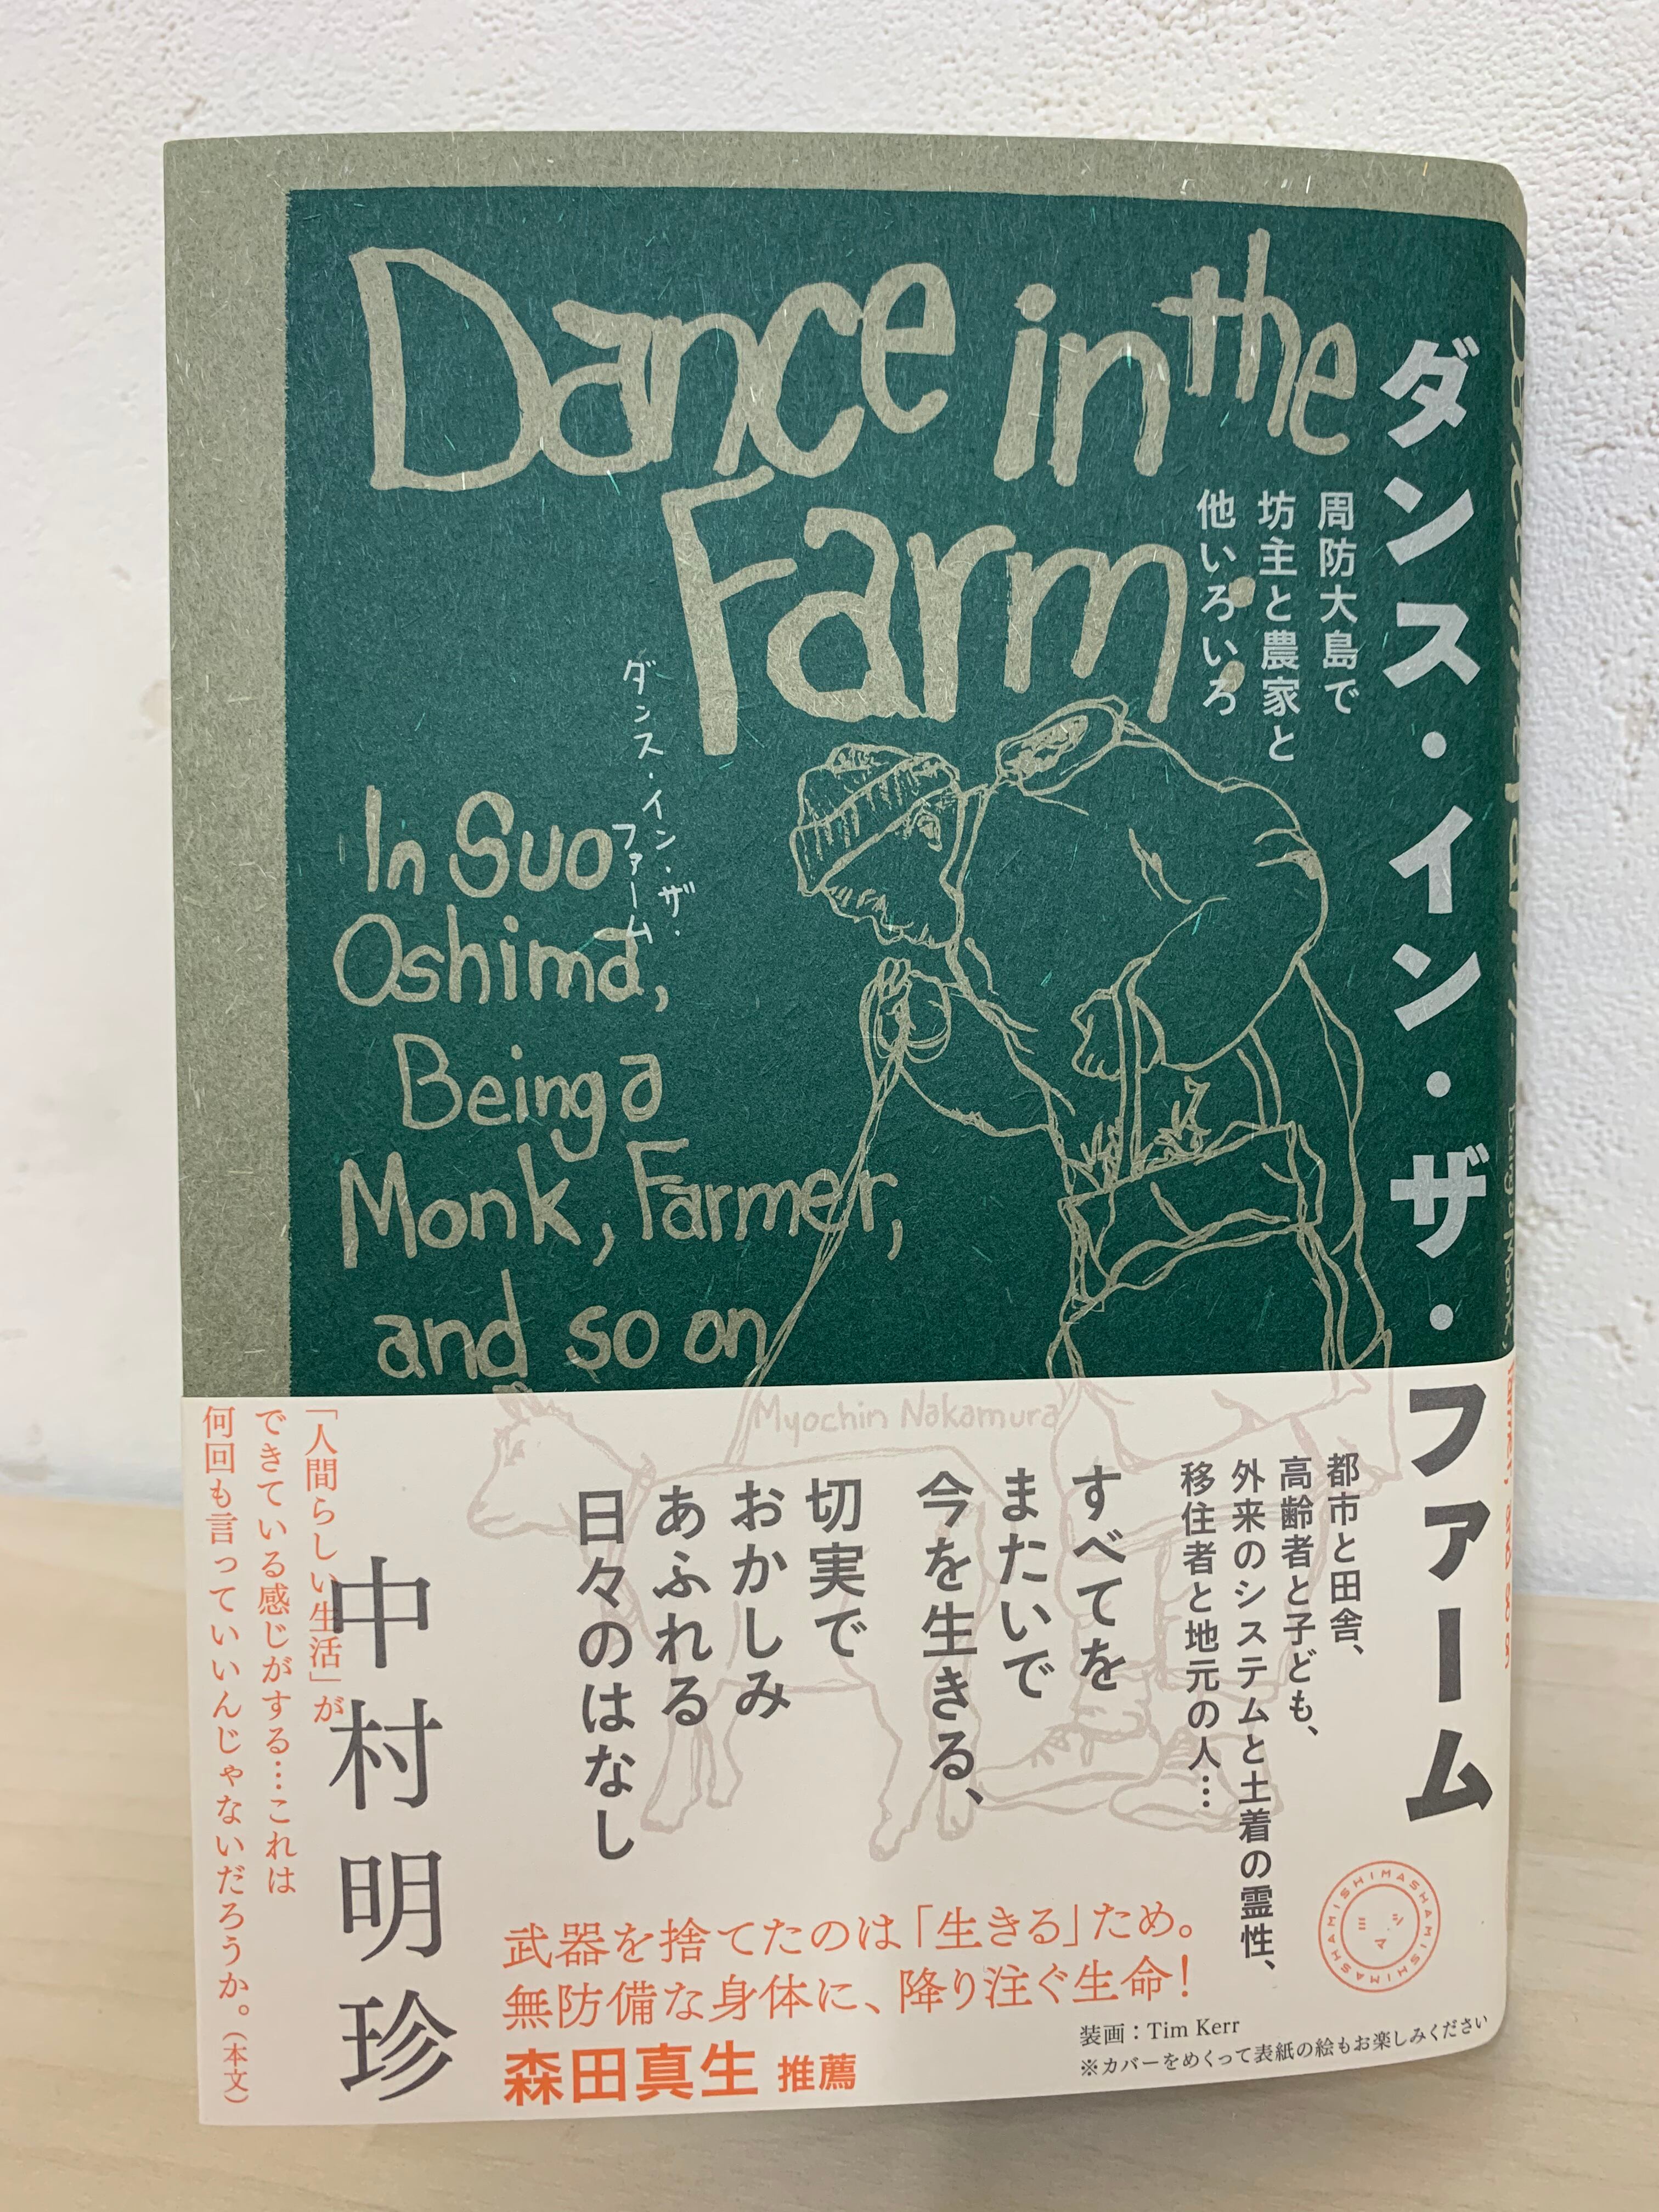 Dance in the
Farm:
In Suo
Oshima,
Being a
Monk, Farmer,
and so on
Myochin Nakamura
ダンス・イン・ザ・
ファーム
ダンス・イン・ザ・ファーム
周防大島で
坊主と農家と
他いろいろ
都市と田舎、
高齢者と子ども、
外来のシステムと土着の霊性、
移住者と地元の人…
すべてを
またいで
今を生きる、
切実で
おかしみ
あふれる
日々のはなし
中村明珍
「人間らしい生活」が
できている感じがする…これは
何回も言っていいんじゃないだろうか。(本文)
武器を捨てたのは「生きる」ため。
無防備な身体に、降り注ぐ生命!
森田真生 推薦
装画:Tim Kerr
※カバーをめくって表紙の絵もお楽しみください
MISHIMASHAMISHIMASHAMISHIMASHA
ミシマ